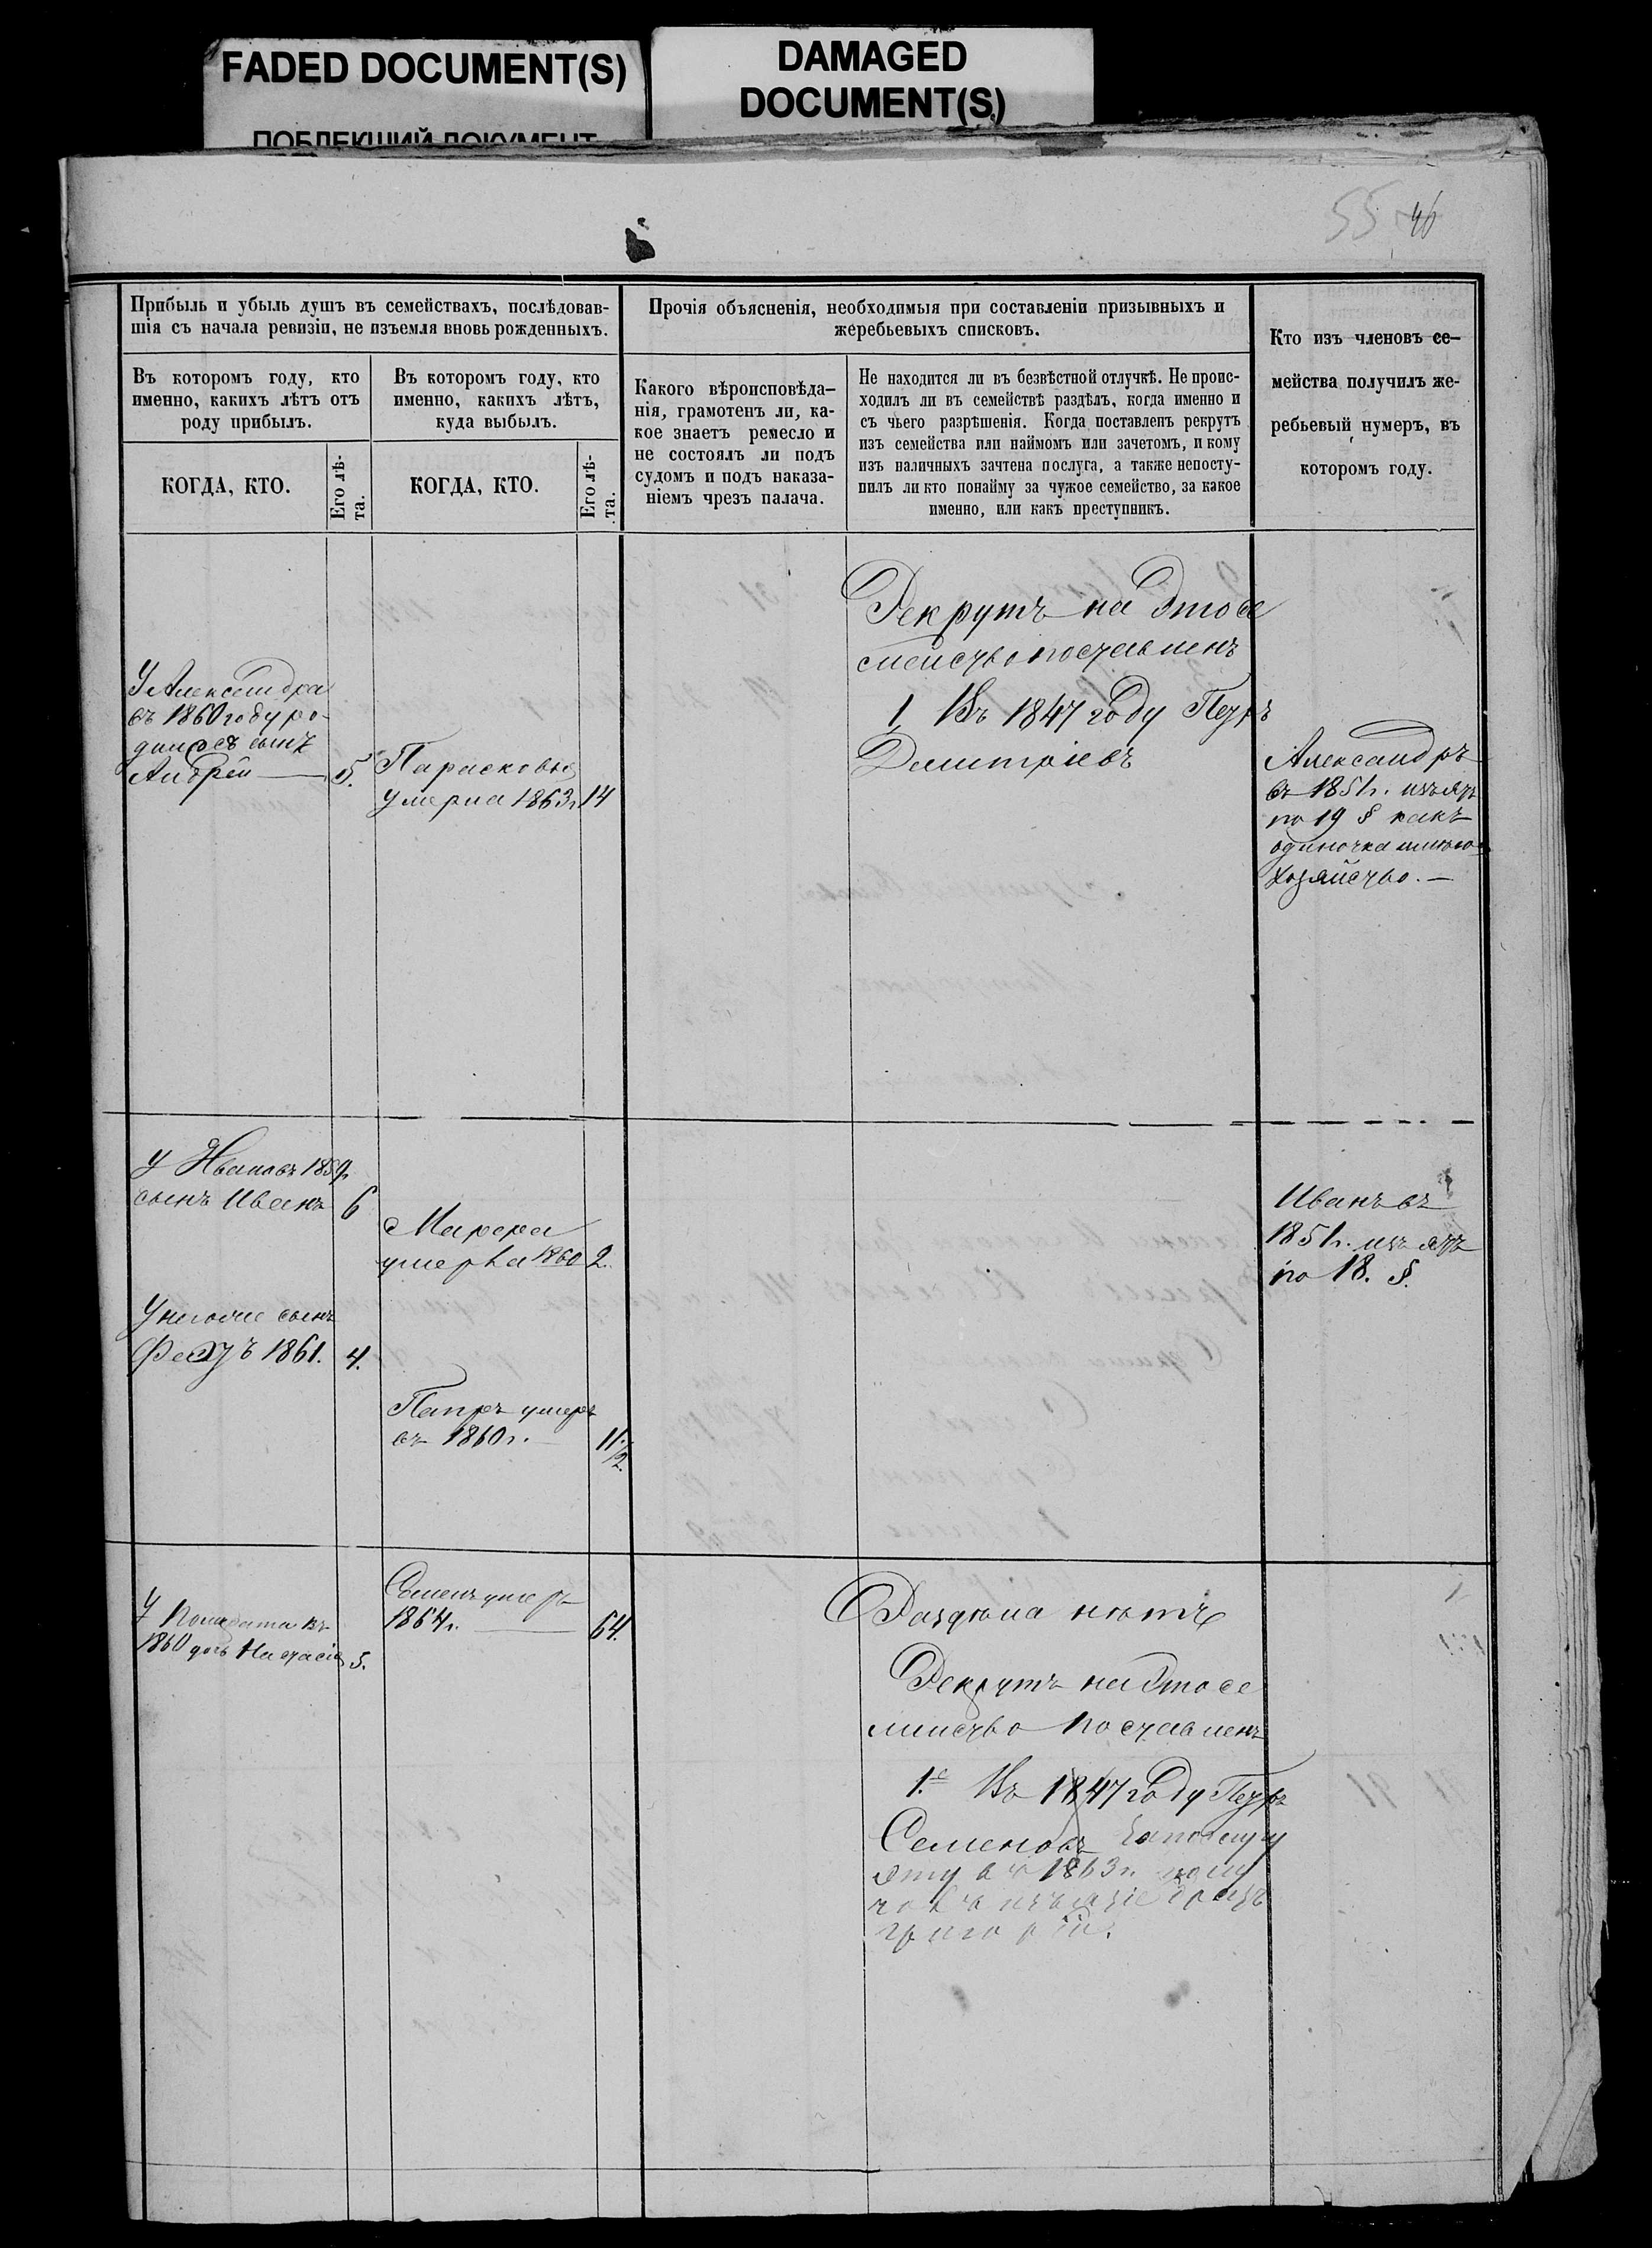 FADED DOCUMENT(S)
ПОБЛЕКШИЙ ДОКУМЕНТ
DAMAGED
DOCUMENT(S)
55 46
Прибыль и убыль душъ въ семействахъ, послѣдовав-
шія съ начала ревизіи, не изъемля вновь рожденныхъ.
Въ которомъ году, кто
именно, какихъ лѣтъ отъ
роду прибылъ.
КОГДА, КТО.
Его лѣ-
та.
Въ которомъ году, кто
именно, какихъ лѣтъ,
куда выбылъ.
КОГДА, КТО.
Его лѣ-
та.
Прочія объясненія, необходимыя при составленіи призывныхъ и
жеребьевыхъ списковъ.
Какого вѣроисповѣда-
нія, грамотенъ ли, ка-
кое знаетъ ремесло и
не состоялъ ли подъ
судомъ и подъ наказа-
ніемъ чрезъ палача.
Не находится ли въ безвѣстной отлучкѣ. Не проис-
ходилъ ли въ семействѣ раздѣлъ, когда именно и
съ чьего разрѣшенія. Когда поставленъ рекрутъ
изъ семейства или наймомъ или зачетомъ, и кому
изъ наличныхъ зачтена послуга, а также непосту-
пилъ ли кто понайму за чужое семейство, за какое
именно, или какъ преступникъ.
Кто изъ членовъ се-
мейства получилъ же-
ребьевый нумеръ, въ
которомъ году.
У Александра
въ 1860 году ро-
дился сынъ
Андрей — 5.
Парасковья
умерла 1863 г. 14
Рекрутъ на это се
мейство поставленъ
1, Въ 1847 году Петръ
Дмитріевъ
Александръ
въ 1851 г. изъятъ
по 19 § какъ
одиночка
хозяйство. —
У Ивана въ 1859 г.
сынъ Иванъ 6
Марфа
умерла 1860 2.
Иванъ въ
1851 г. изъятъ
по 18. §.
У него же сынъ
1861. 4.
умеръ
въ 1860 г. — 11/2.
У въ
1860 дочь Настасія 5.
Семенъ умеръ
1864 г. — 64.
Раздѣла нѣтъ
Рекрутъ на это се
мейство поставленъ
1.е Въ 1847 году Петръ
Семеновъ
въ 1863 г.